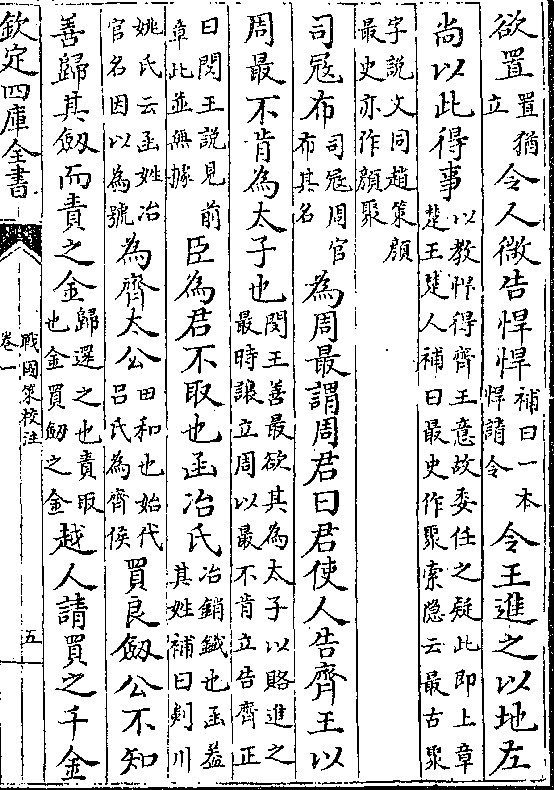 欲置置猶立令人微告悍悍補曰一本悍請令令王進之以地左
尚以此得事以教悍得齊王意故委任之疑此即上章楚王楚人補曰最史作聚索隐云最古聚
字說文同趙策顔最史亦作顔聚
司寇布司寇周官布其名為周最謂周君曰君使人告齊王以
周最不肯為太子也閔王善最欲其為太子以賂進之最時讓立周以最不肯立告齊正
曰閔王說見前章此並無據臣為君不取也函冶氏冶銷鐵也函葢其姓補曰剡川
姚氏云函姓冶官名因以為號為齊太公田和也始代吕氏為齊侯買良劔公不知
善歸其劔而責之金歸還之也責取也金買劔之金越人請買之千金
欽定四庫全書
戰國策校注
卷一
五